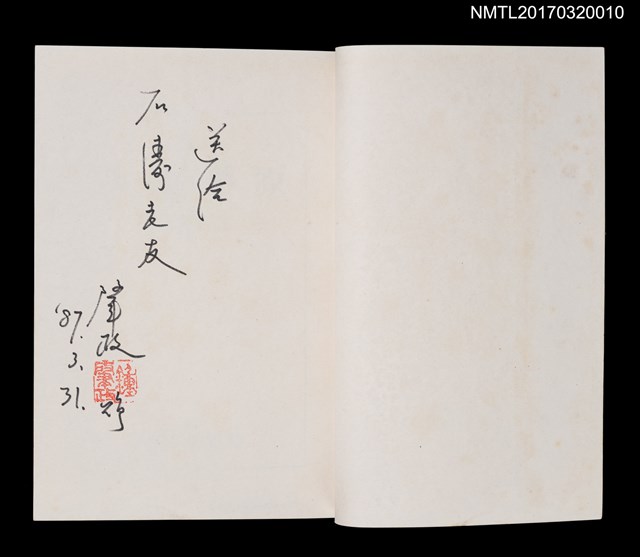 NMTL20170320010
送給
石濤老友
肇政
鍾肇政
贈
'87.3.31.